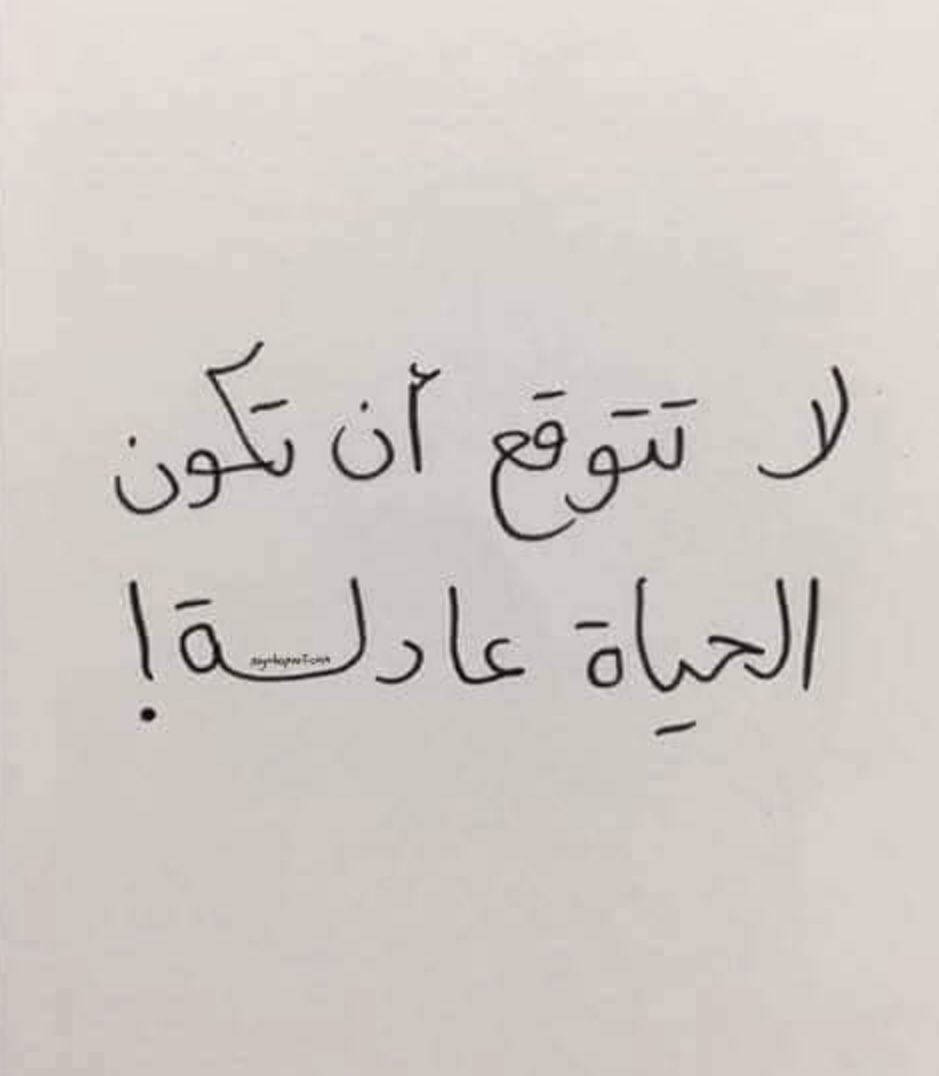 لا تتوقع أن تكون
الحياة عادلة!